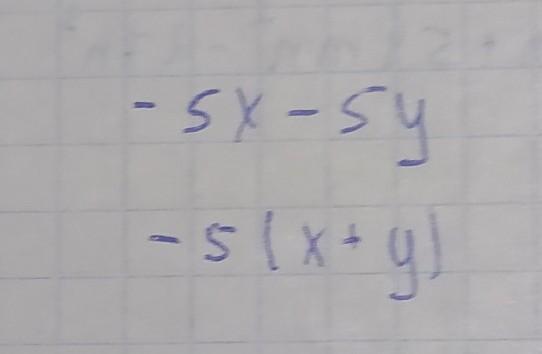 - 5x - 5y
- 5(x + y)